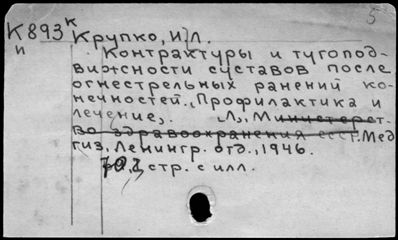 5
К893к Крупко, И.Л.
и
Контрактуры и тугопод-
вижности суставов после
огнестрельных ранений ко-
нечностей., Профилактика и
лечение,. Л., Министерст-
во здравоохранения ссср. Мед
гиз, Ленингр. отд., 1946.
стр. с илл.